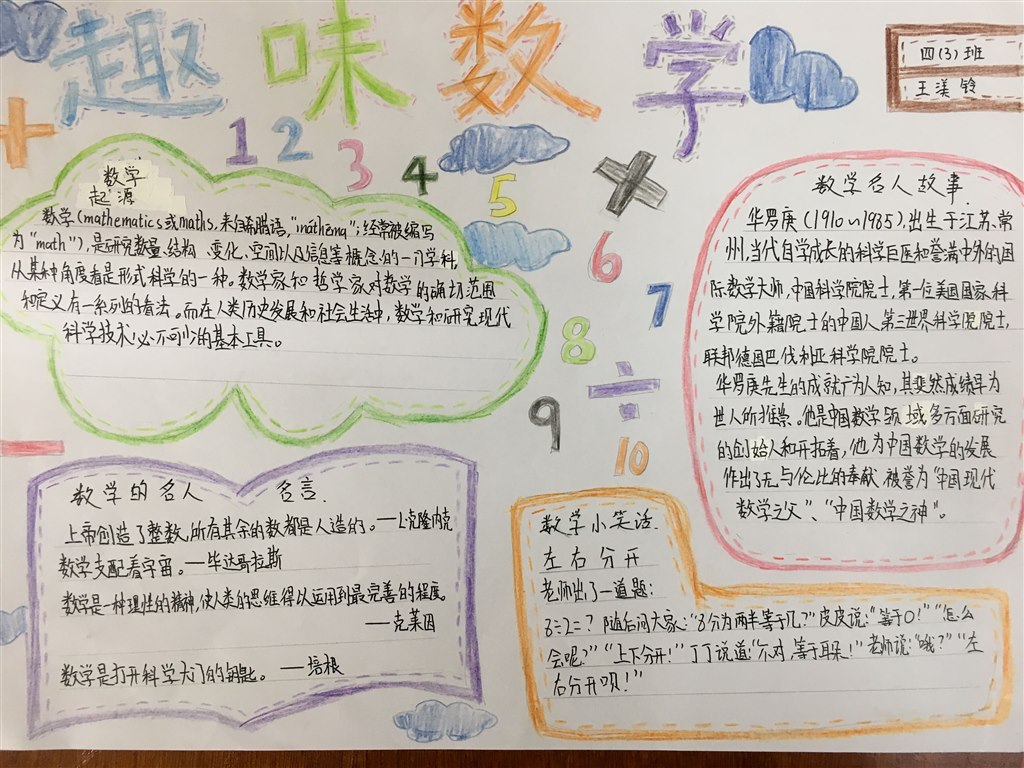 趣味数学
四(3)班
王渼铃
1 2 3 4 5 6 7 8 9 10
数学
起源
数学(mathematics或maths,来自希腊语,"máthēma";经常被缩写
为"math"),是研究数量、结构、变化、空间以及信息等概念的一门学科,
从某种角度看是形式科学的一种。数学家和哲学家对数学的确切范围
和定义有一系列的看法。而在人类历史发展和社会生活中,数学和研究现代
科学技术必不可少的基本工具。
数学名人故事
华罗庚(1910~1985),出生于江苏常
州,当代自学成长的科学巨匠和誉满中外的国
际数学大师,中国科学院院士,第一位美国国家科
学院外籍院士的中国人第三世界科学院院士,
联邦德国巴伐利亚科学院院士。
华罗庚先生的成就广为人知,其斐然成绩早为
世人所推崇。他是中国数学领域多方面研究
的创始人和开拓着,他为中国数学的发展
作出了无与伦比的奉献,被誉为"中国现代
数学之父"、"中国数学之神"。
数学的名人名言.
上帝创造了整数,所有其余的数都是人造的。—L·克隆内克
数学支配着宇宙。—毕达哥拉斯
数学是一种理性的精神,使人类的思维得以运用到最完善的程度。
—克莱因
数学是打开科学大门的钥匙。—培根
数学小笑话:
左右分开
老师出了一道题:
8÷2=?随后问大家:"8分为两半等于几?"皮皮说:"等于0!""怎么
会呢?""上下分开!"丁丁说道:"不对,等于耳朵!"老师说:"哦?""左
右分开呗!"